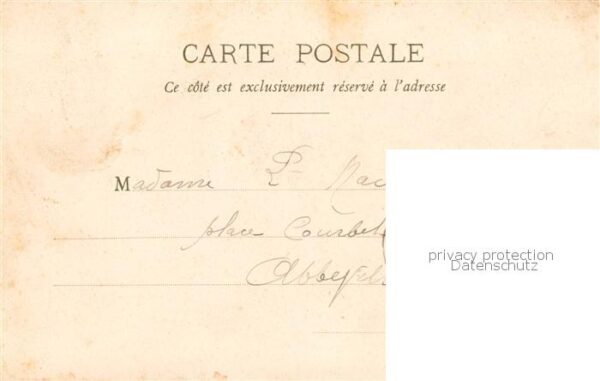 CARTE POSTALE
Ce côté est exclusivement réservé à l'adresse
Madame
place Courbet
privacy protection
Datenschutz